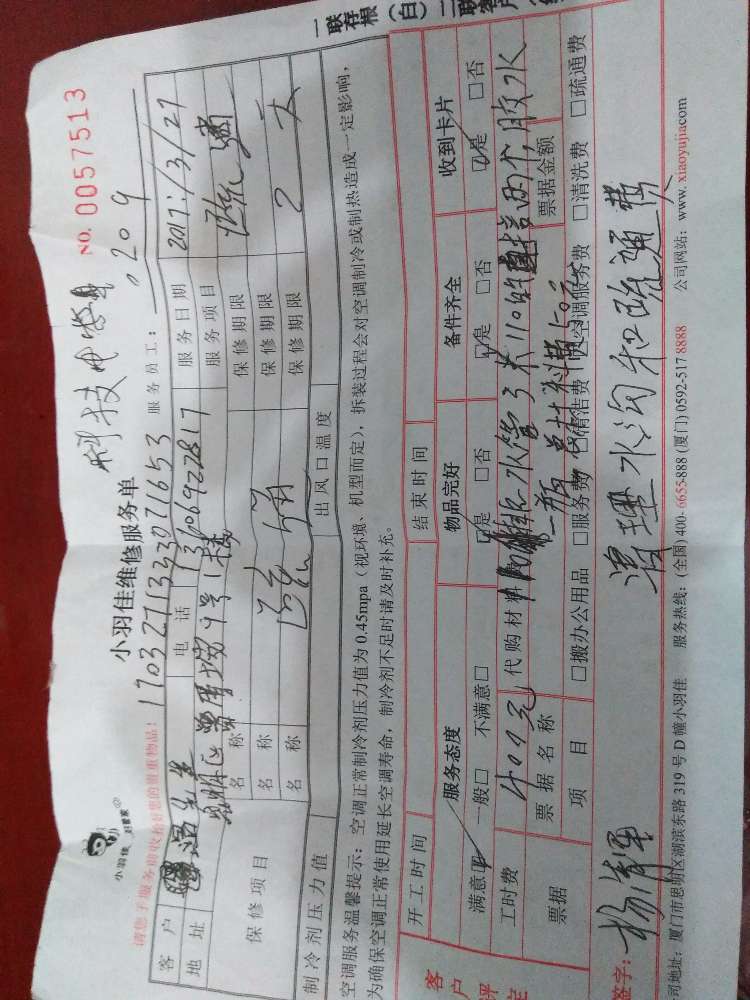 一联存根（白）二联客户
NO. 0057513
科技
小羽佳 好管家
小羽佳维修服务单
请您予服务前收拾好您的贵重物品！
170327133307 1653
服务员工：209
客户 先生 电话 13069922817 服务日期 2017/3/27
地址 思明区 9号1楼 服务项目 疏通
保修项目 名称 保修期限
名称 保修期限
名称 疏通 保修期限 2天
制冷剂压力值 出风口温度
空调服务温馨提示：空调正常制冷剂压力值为0.45mpa（视环境、机型而定），拆装过程会对空调制冷或制热造成一定影响，
为确保空调正常使用延长空调寿命，制冷剂不足时请及时补充。
开工时间 结束时间
客户评定 服务态度 物品完好 备件齐全 收到卡片
满意☑ 一般□ 不满意□ ☑是 □否 ☑是 □否 ☑是 □否
工时费 400元 代购材料 排水管3米110 两个，胶水
一瓶 材料费150元
票据 票据名称 票据金额
项目 □搬办公用品 □服务费 □清洁费 □空调服务费 □清洗费 □疏通费
签字： 清理水沟和疏通费
公司地址：厦门市思明区湖滨东路319号D幢小羽佳 服务热线：(全国) 400-6655-888 (厦门) 0592-517 8888 公司网站：www.xiaoyujia.com